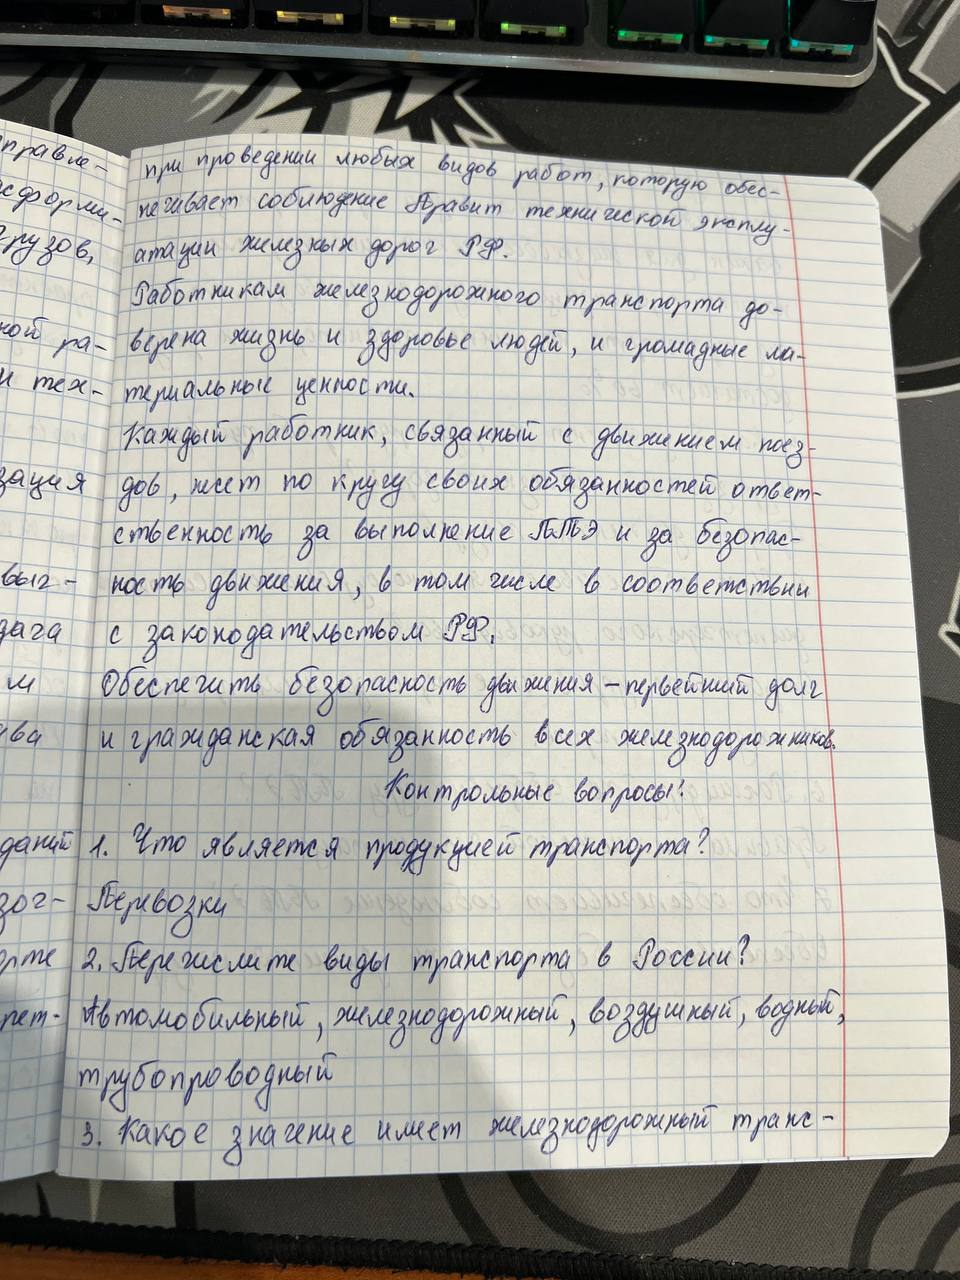 правле-
сформи-
грузов,
ной ра-
и тех-
зация
выг-
дача
м
ава
даний
зог-
орте
рет-
при проведении любых видов работ, которую обес-
печивает соблюдение Правит технической эксплу-
атации железных дорог РФ.
Работникам железнодорожного транспорта до-
верена жизнь и здоровье людей, и громадные ма-
териальные ценности.
Каждый работник, связанный с движением поез-
дов, несет по кругу своих обязанностей ответ-
ственность за выполнение ПТЭ и за безопас-
ность движения, в том числе в соответствии
с законодательством РФ.
Обеспечить безопасность движения – первейший долг
и гражданская обязанность всех железнодорожников.
Контрольные вопросы:
1. Что является продукцией транспорта?
Перевозки
2. Перечислите виды транспорта в России?
Автомобильный, железнодорожный, воздушный, водный,
трубопроводный
3. Какое значение имеет железнодорожный транс-